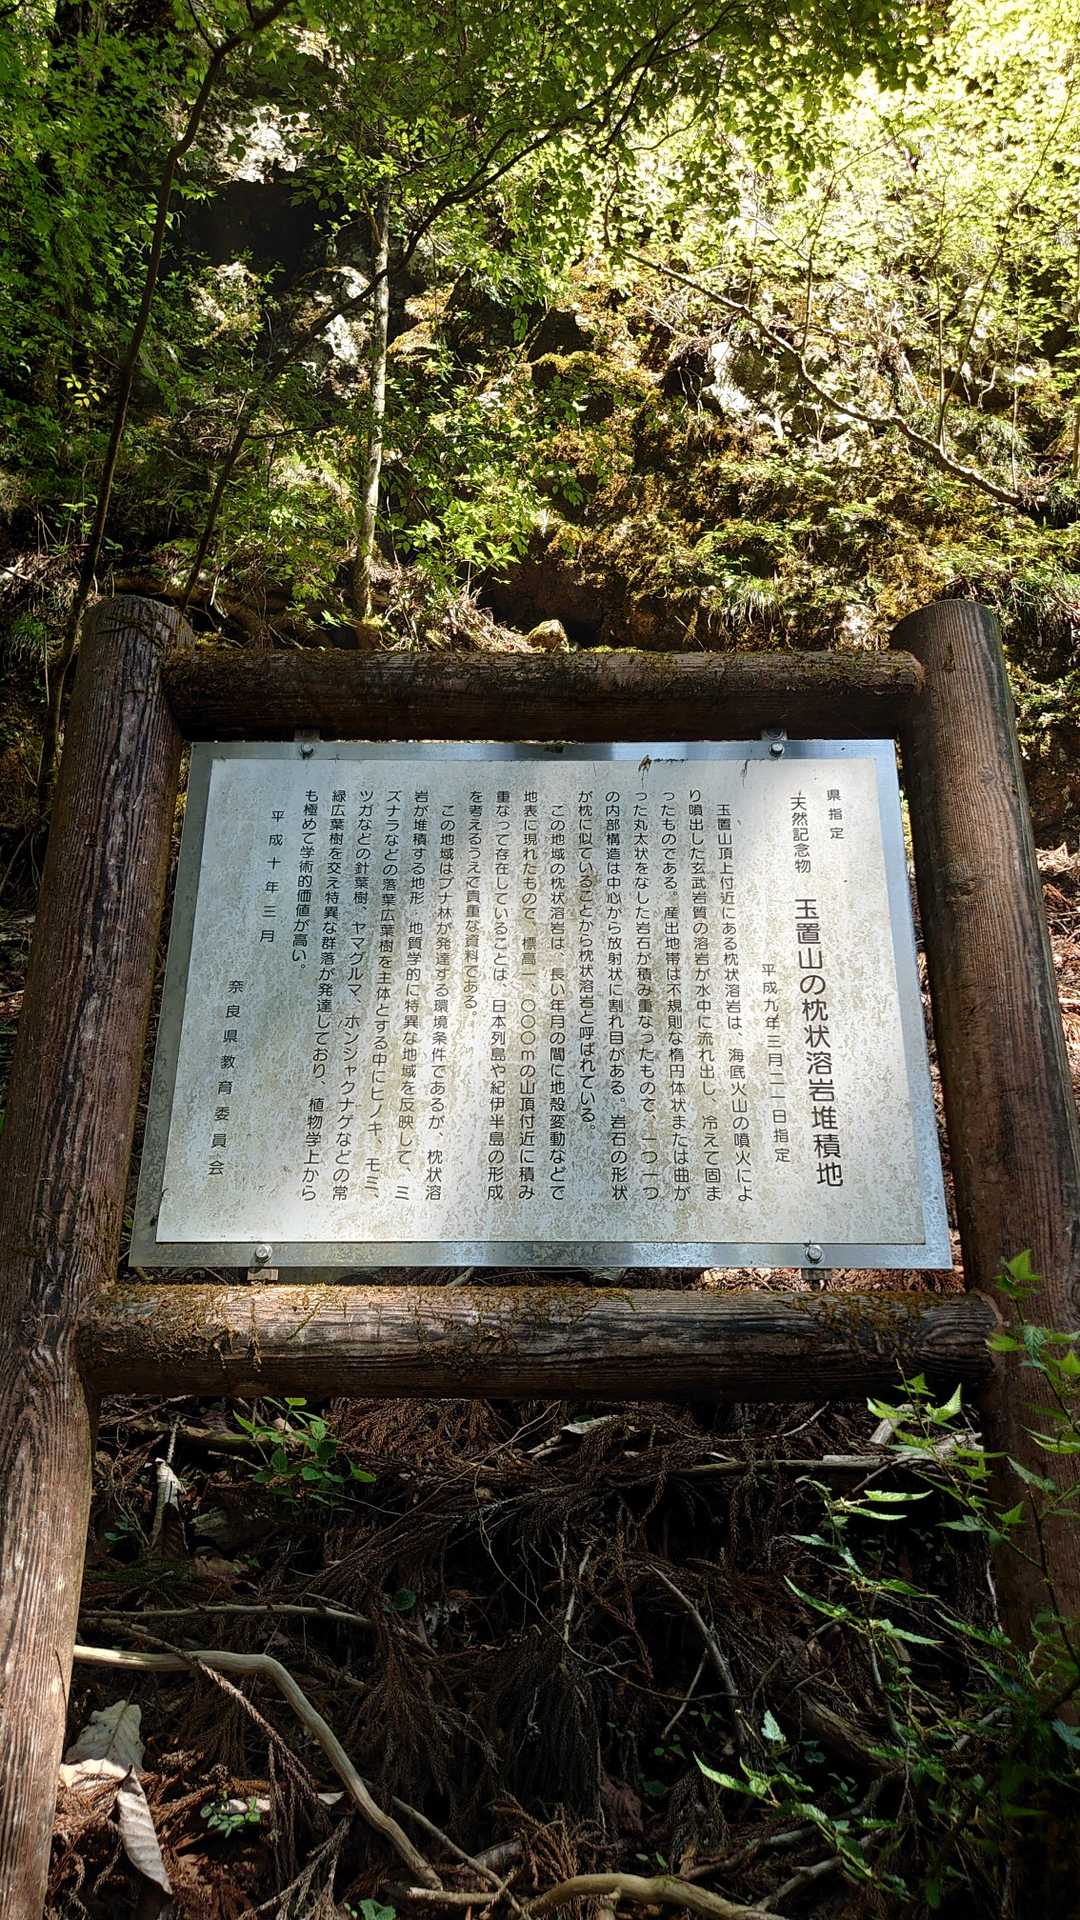 県指定
天然記念物　玉置山の枕状溶岩堆積地
平成九年三月二一日指定
玉置山頂上付近にある枕状溶岩は、海底火山の噴火によ
り噴出した玄武岩質の溶岩が水中に流れ出し、冷えて固ま
ったものである。産出地帯は不規則な楕円体状または曲が
った丸太状をなした岩石が積み重なったもので、一つ一つ
の内部構造は中心から放射状に割れ目がある。岩石の形状
が枕に似ていることから枕状溶岩と呼ばれている。
この地域の枕状溶岩は、長い年月の間に地殻変動などで
地表に現れたもので、標高一、〇〇〇mの山頂付近に積み
重なって存在していることは、日本列島や紀伊半島の形成
を考えるうえで貴重な資料である。
この地域はブナ林が発達する環境条件であるが、枕状溶
岩が堆積する地形、地質学的に特異な地域を反映して、ミ
ズナラなどの落葉広葉樹を主体とする中にヒノキ、モミ、
ツガなどの針葉樹、ヤマグルマ、ホンシャクナゲなどの常
緑広葉樹を交え特異な群落が発達しており、植物学上から
も極めて学術的価値が高い。
平成十年三月
奈良県教育委員会